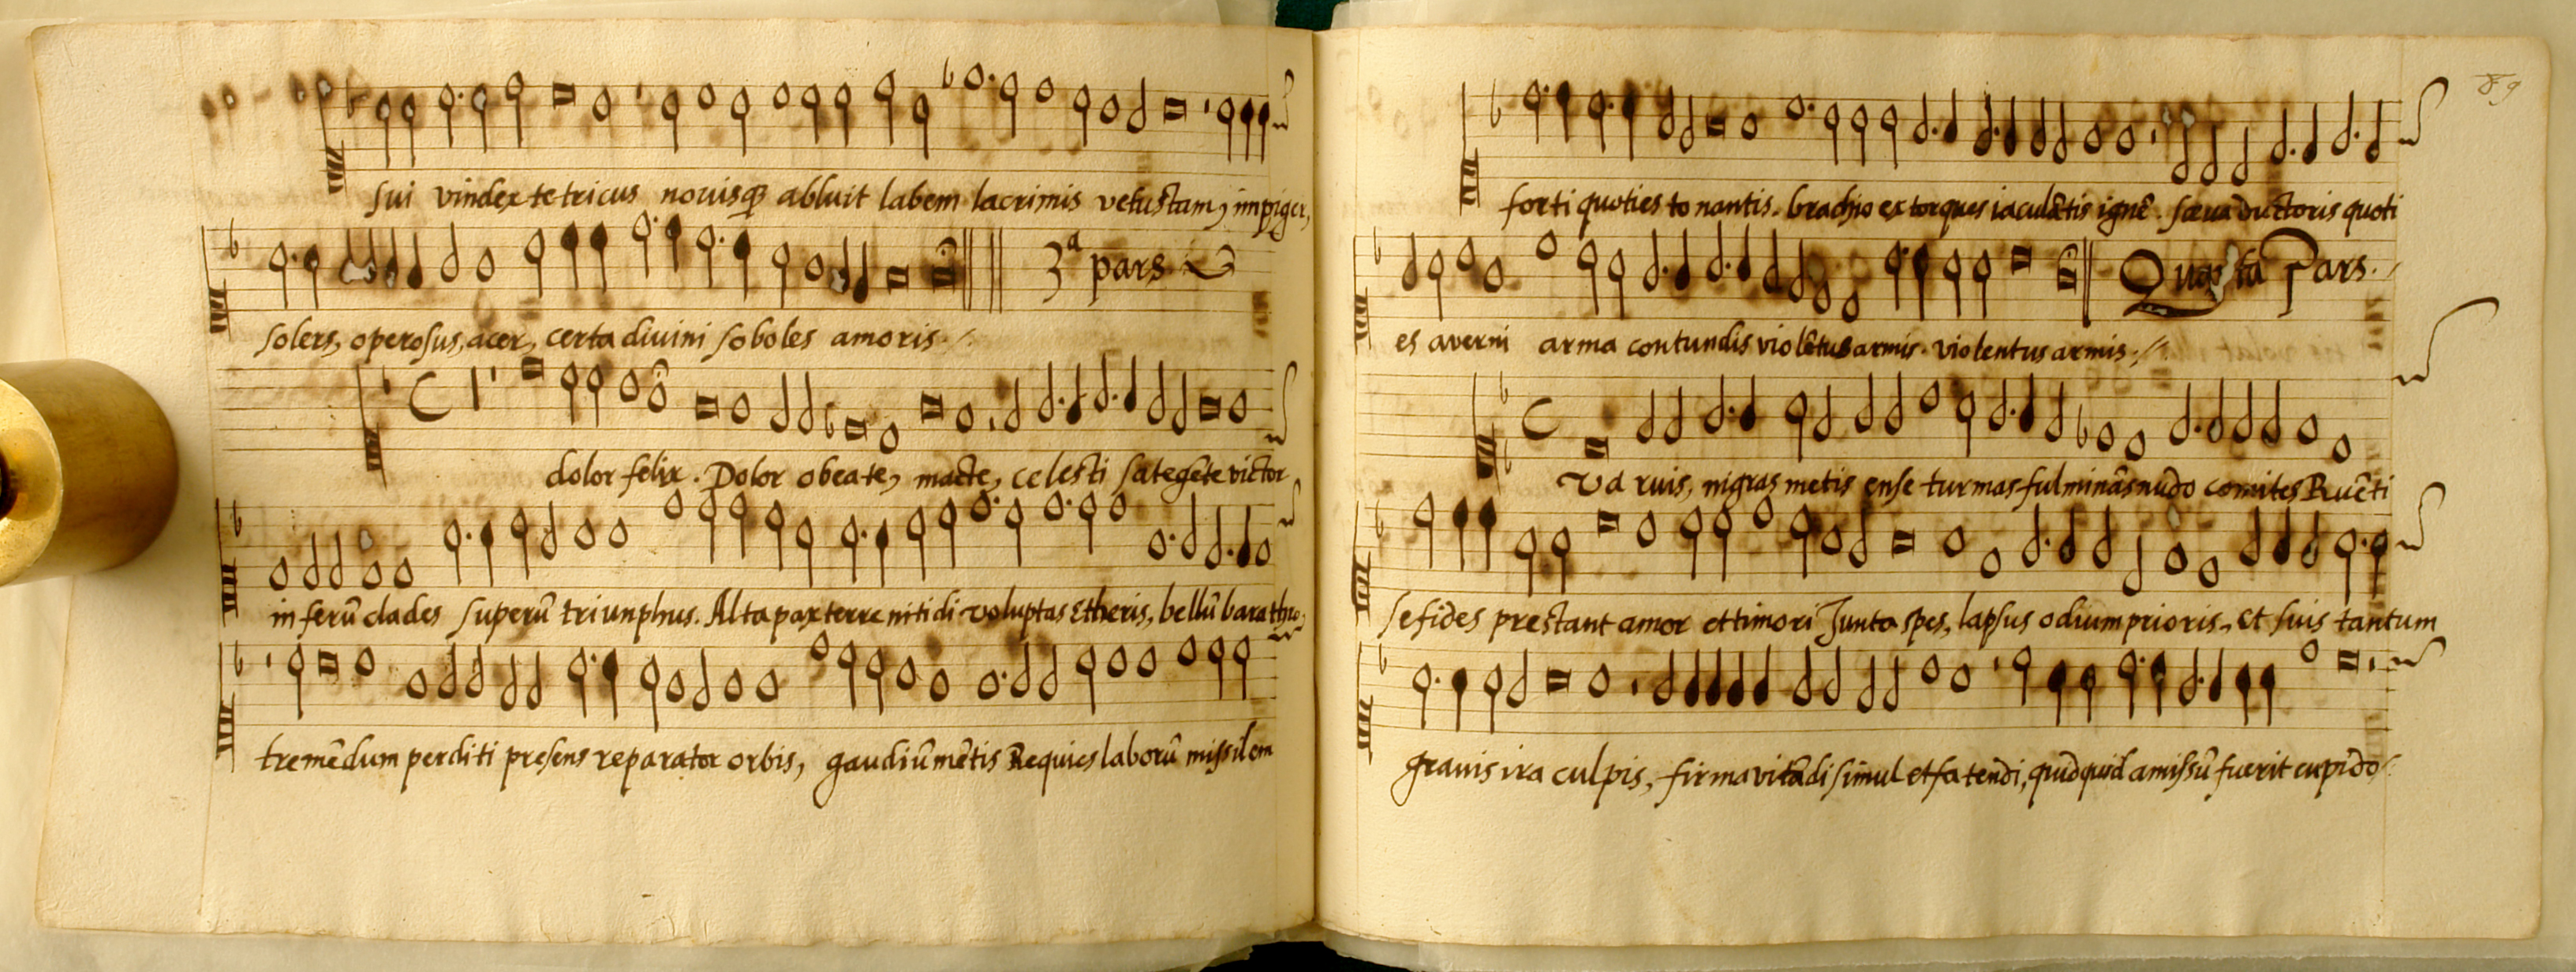 sui vindex tetricus nouisqȝ abluit labem lacrimis vetustam, impiger,
solers, operosus, acer, certa diuini soboles amoris.
3ª pars
dolor felix. Dolor o beate, macte, celesti sategête victor
inferū clades superū triunphus. Alta pax terre nitidi voluptas Etheris, bellū barathro,
tremēdum perditi presens reparator orbis, gaudiū mētis Requies laborū missilem
89
forti quoties tonantis. brachio extorques iaculātis ignē. sæua ductoris quoti
es averni arma contundis violētus armis. violentus armis.
Quarta Pars.
Vd ruis, nigras metis ense turmas fulminās nudo comites Ruēti
se fides prestant amor et timori Juncta spes, lapsus odium prioris, et suis tantum
grauis ira culpis, firma vitādi simul et fatendi, quidquid amissū fuerit cupido.